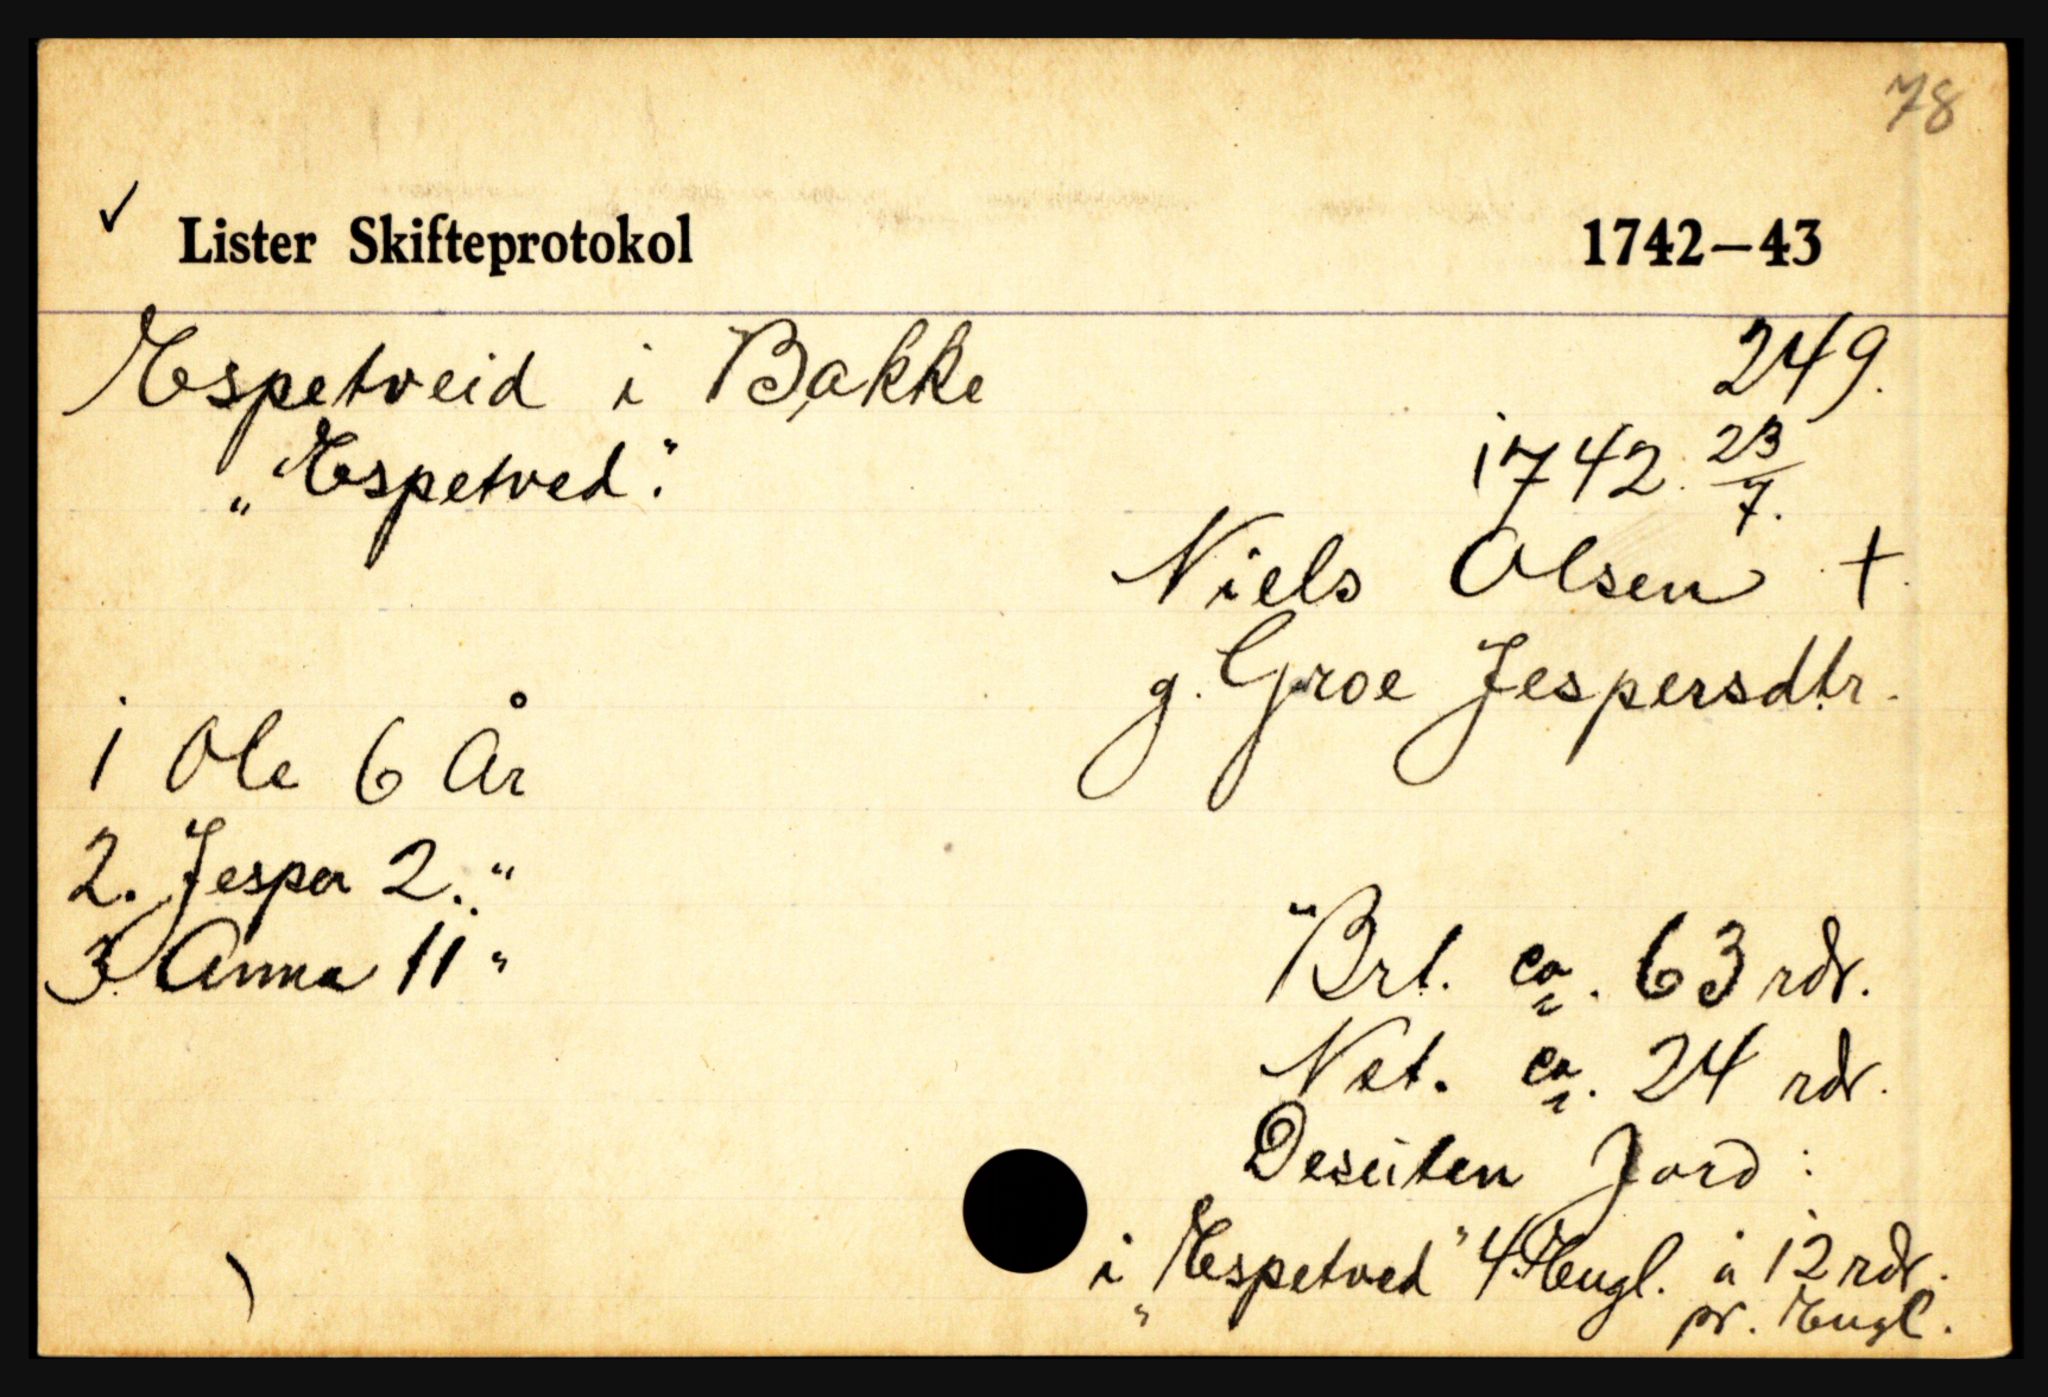 78
✓ Lister Skifteprotokol 1742–43
Espetveid i Bakke 249.
„Espetved". 1742. 23/7.
Niels Olsen +.
g. Groe Jespersdtr.
1 Ole 6 År
2. Jesper 2. "
3. Anna 11 "
Brt. ca. 63 rdr.
Net. ca. 24 rdr.
Desuten Jord:
i „Espetved" 4 Engl. à 12 rdr.
pr. Engl.